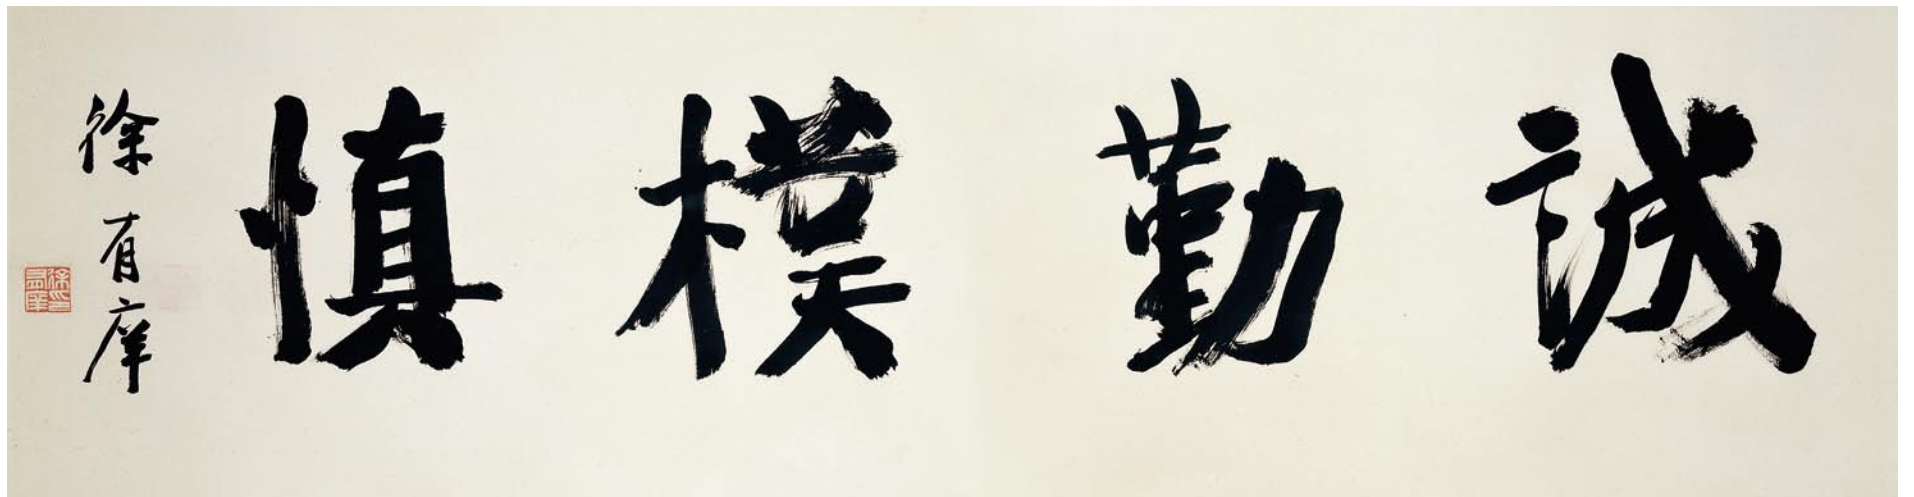 誠勤樸慎
徐有庠
徐印有庠